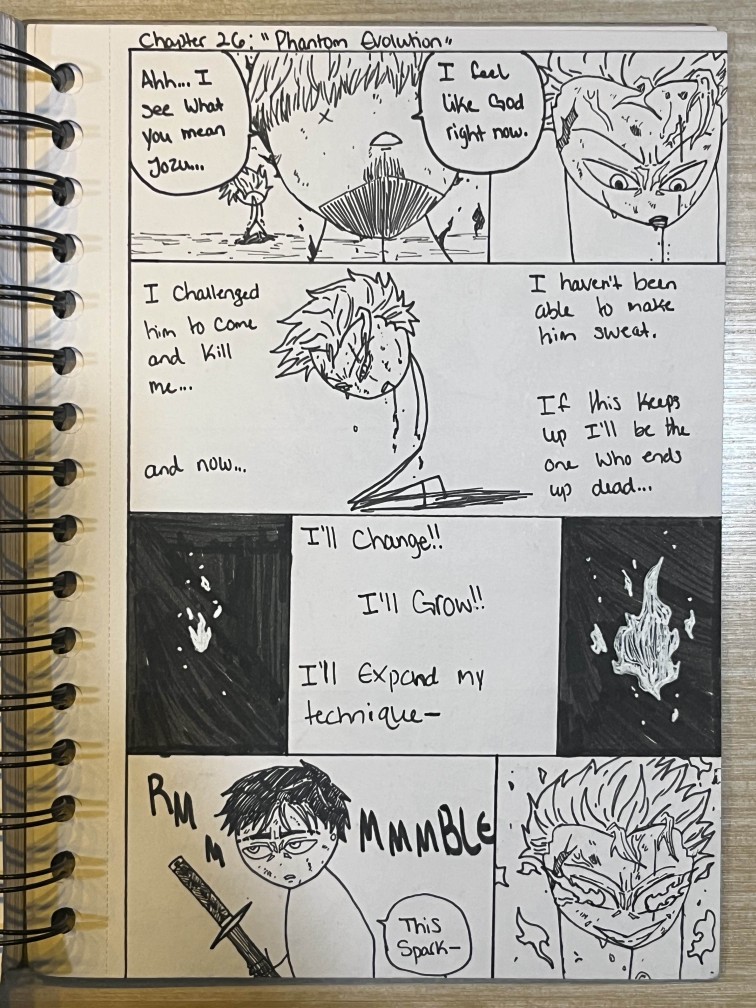 Chapter 26: "Phantom Evolution"
Ahh... I
see what
you mean
Jozu...
I feel
like God
right now.
I challenged
him to come
and kill
me...
and now...
I haven't been
able to make
him sweat.
If this keeps
up I'll be the
one who ends
up dead...
I'll Change!!
I'll Grow!!
I'll Expand my
technique—
RMM
MMMBLE
This
Spark—